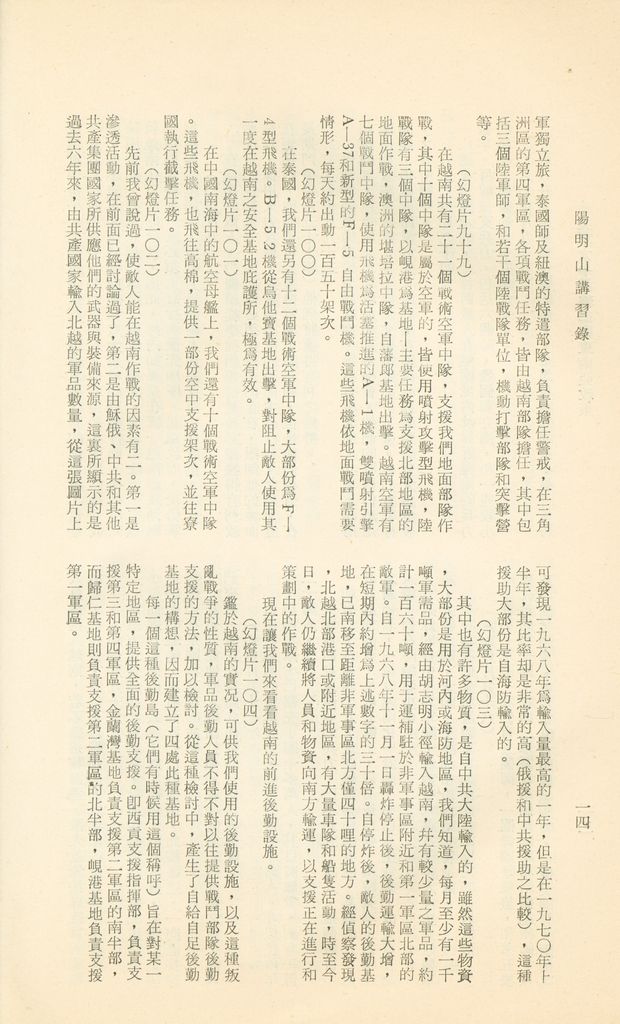 陽明山講習錄
一四
軍獨立旅，泰國師及紐澳的特遣部隊，負責擔任警戒，在三角
洲區的第四軍區，各項戰鬥任務，皆由越南部隊擔任，其中包
括三個陸軍師，和若干個陸戰隊單位，機動打擊部隊和突擊營
等。
（幻燈片九十九）
在越南共有二十一個戰術空軍中隊，支援我們地面部隊作
戰，其中十個中隊是屬於空軍的，皆使用噴射攻擊型飛機，陸
戰隊有三個中隊，以峴港爲基地—主要任務爲支援北部地區的
地面作戰，澳洲的堪培拉中隊，自藩郎基地出擊。越南空軍有
七個戰鬥中隊，使用飛機爲活塞推進的A—1機，雙噴射引擎
A—37和新型的F—5自由戰鬥機。這些飛機依地面戰鬥需要
情形，每天約出動一百五十架次。
（幻燈片一〇〇）
在泰國，我們還另有十二個戰術空軍中隊，大部份爲F—
4型飛機。B—52機從烏他寶基地出擊，對阻止敵人使用其
一度在越南之安全基地庇護所，極爲有效。
（幻燈片一〇一）
在中國南海中的航空母艦上，我們還有十個戰術空軍中隊
。這些飛機，也飛往高棉，提供一部份空中支援架次，並往寮
國執行截擊任務。
（幻燈片一〇二）
先前我曾說過，使敵人能在越南作戰的因素有二。第一是
滲透活動，在前面已經討論過了，第二是由蘇俄、中共和其他
共產集團國家所供應他們的武器與裝備來源，這裏所顯示的是
過去六年來，由共產國家輸入北越的軍品數量，從這張圖片上
可發現一九六八年爲輸入量最高的一年，但是在一九七〇年上
半年，其比率却是非常的高（俄援和中共援助之比較），這種
援助大部份是自海防輸入的。
（幻燈片一〇三）
其中也有許多物質，是自中共大陸輸入的，雖然這些物資
，大部份是用於河內或海防地區，我們知道，每月至少有一千
噸軍需品，經由胡志明小徑輸入越南，幷有較少量之軍品，約
計一百六十噸，用于運補駐於非軍事區附近和第一軍區北部的
敵軍。自一九六八年十一月一日轟炸停止後，後勤運輸大增，
在短期內約增爲上述數字的三十倍。自停炸後，敵人的後勤基
地，已南移至距離非軍事區北方僅四十哩的地方。經偵察發現
，北越北部港口或附近地區，有大量車隊和船隻活動，時至今
日，敵人仍繼續將人員和物資向南方輸運，以支援正在進行和
策劃中的作戰。
現在讓我們來看看越南的前進後勤設施。
（幻燈片一〇四）
鑑於越南的實況，可供我們使用的後勤設施，以及這種叛
亂戰爭的性質，軍品後勤人員不得不對以往提供戰鬥部隊後勤
支援的方法，加以檢討。從這種檢討中，產生了自給自足後勤
基地的構想，因而建立了四處此種基地。
每一個這種後勤島（它們有時候用這個稱呼）旨在對某一
特定地區，提供全面的後勤支援。卽西貢支援指揮部，負責支
援第三和第四軍區，金蘭灣基地負責支援第二軍區的南半部，
而歸仁基地則負責支援第二軍區的北半部，峴港基地負責支援
第一軍區。